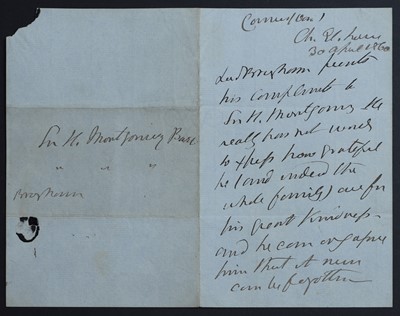 Sir H. Montgomery
" " "
Brougham
30 April 1860
Lord Brougham presents
his compliments to
Sir H. Montgomery He
really has not words
to express how grateful
he (and indeed the
whole family) are for
his great kindness
and he can only assure
him that it never
can be forgotten